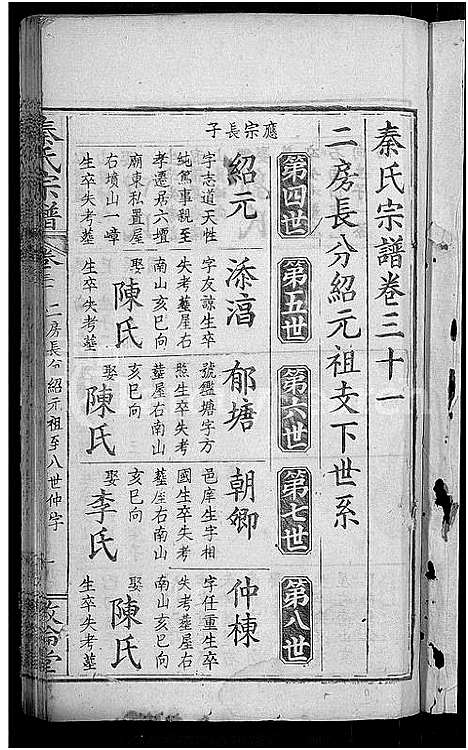 秦氏宗譜卷三十一
二房長分紹元祖支下世系
第四世
第五世
第六世
第七世
第八世
應宗長子
紹元
字志道天性
純篤事親至
孝遷居六壇
廟東私置屋
右墳山一嶂
生卒失考塟
添滔
字友諒生卒
失考塟屋右
南山亥巳向
娶陳氏
生卒失考塟
郁塘
號鑑塘字方
生卒失考
塟屋右南山
亥巳向
娶陳氏
朝卿
邑庠生字相
國生卒失考
塟屋右南山
亥巳向
娶李氏
仲棟
字任重生卒
失考塟屋右
南山亥巳向
娶陳氏
生卒失考塟
秦氏宗譜
二房長分紹元祖至八世仲字
一
敦倫堂